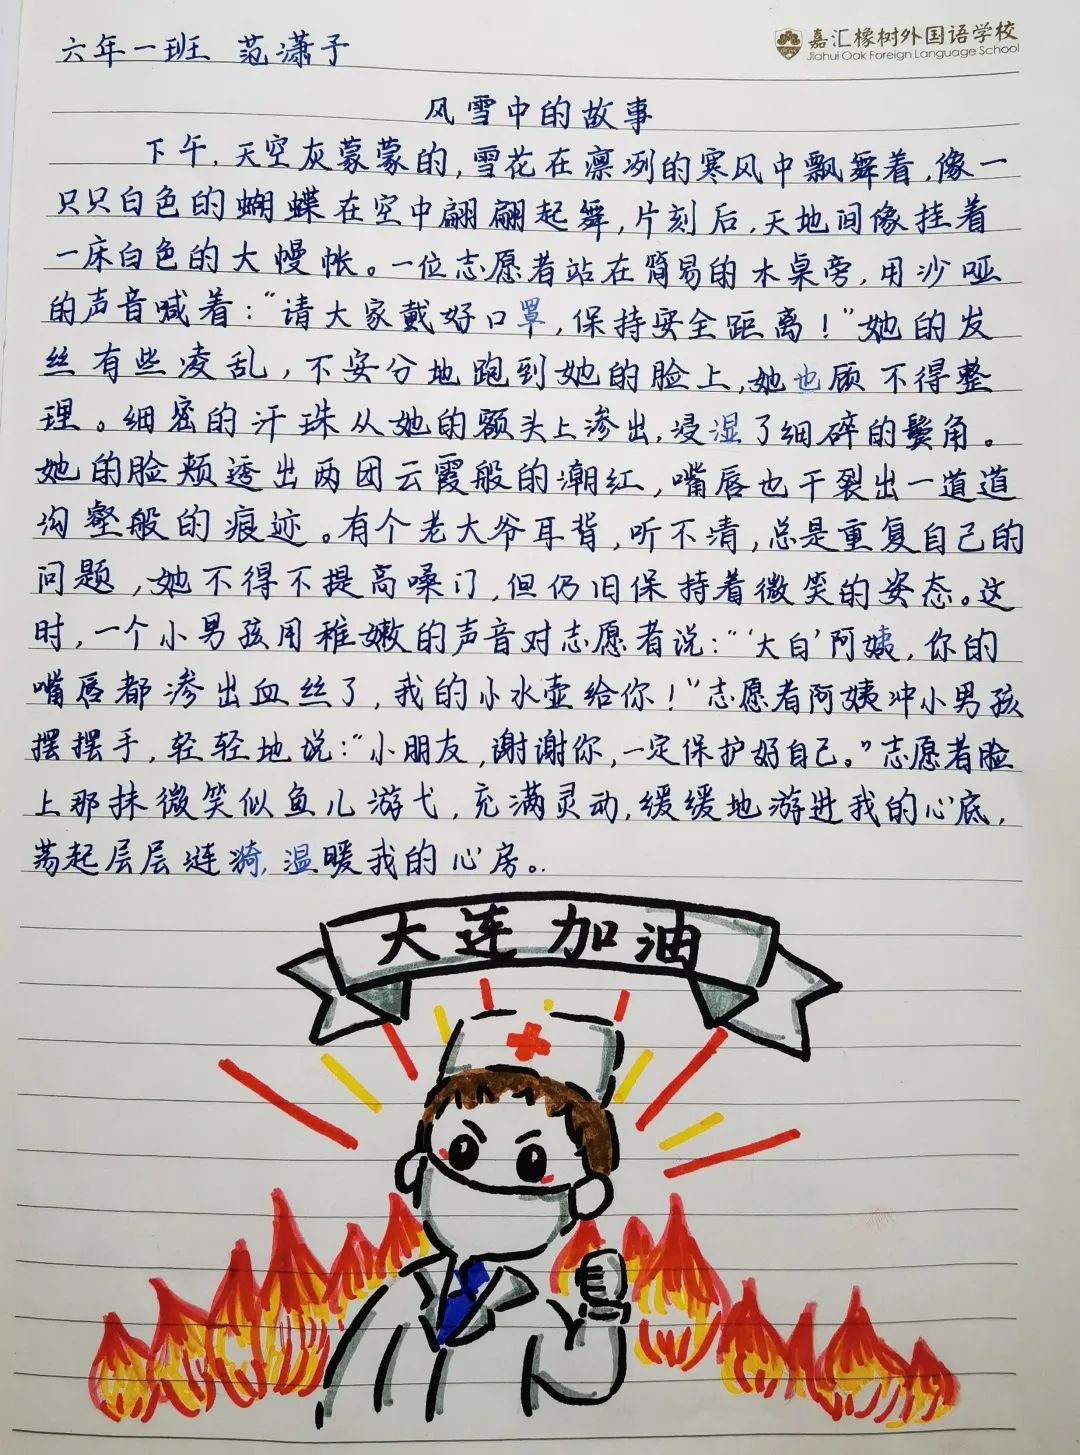 六年一班 范潇予
嘉汇橡树外国语学校
Jiahui Oak Foreign Language School
风雪中的故事
下午,天空灰蒙蒙的,雪花在凛冽的寒风中飘舞着,像一
只只白色的蝴蝶在空中翩翩起舞,片刻后,天地间像挂着
一床白色的大幔帐。一位志愿者站在简易的木桌旁,用沙哑
的声音喊着:“请大家戴好口罩,保持安全距离!”她的发
丝有些凌乱,不安分地跑到她的脸上,她也顾不得整
理。细密的汗珠从她的额头上渗出,浸湿了细碎的鬓角。
她的脸颊透出两团云霞般的潮红,嘴唇也干裂出一道道
沟壑般的痕迹。有个老大爷耳背,听不清,总是重复自己的
问题,她不得不提高嗓门,但仍旧保持着微笑的姿态。这
时,一个小男孩用稚嫩的声音对志愿者说:“‘大白’阿姨,你的
嘴唇都渗出血丝了,我的小水壶给你!”志愿者阿姨冲小男孩
摆摆手,轻轻地说:“小朋友,谢谢你,一定保护好自己。”志愿者脸
上那抹微笑似鱼儿游弋,充满灵动,缓缓地游进我的心底,
荡起层层涟漪,温暖我的心房。
大连加油